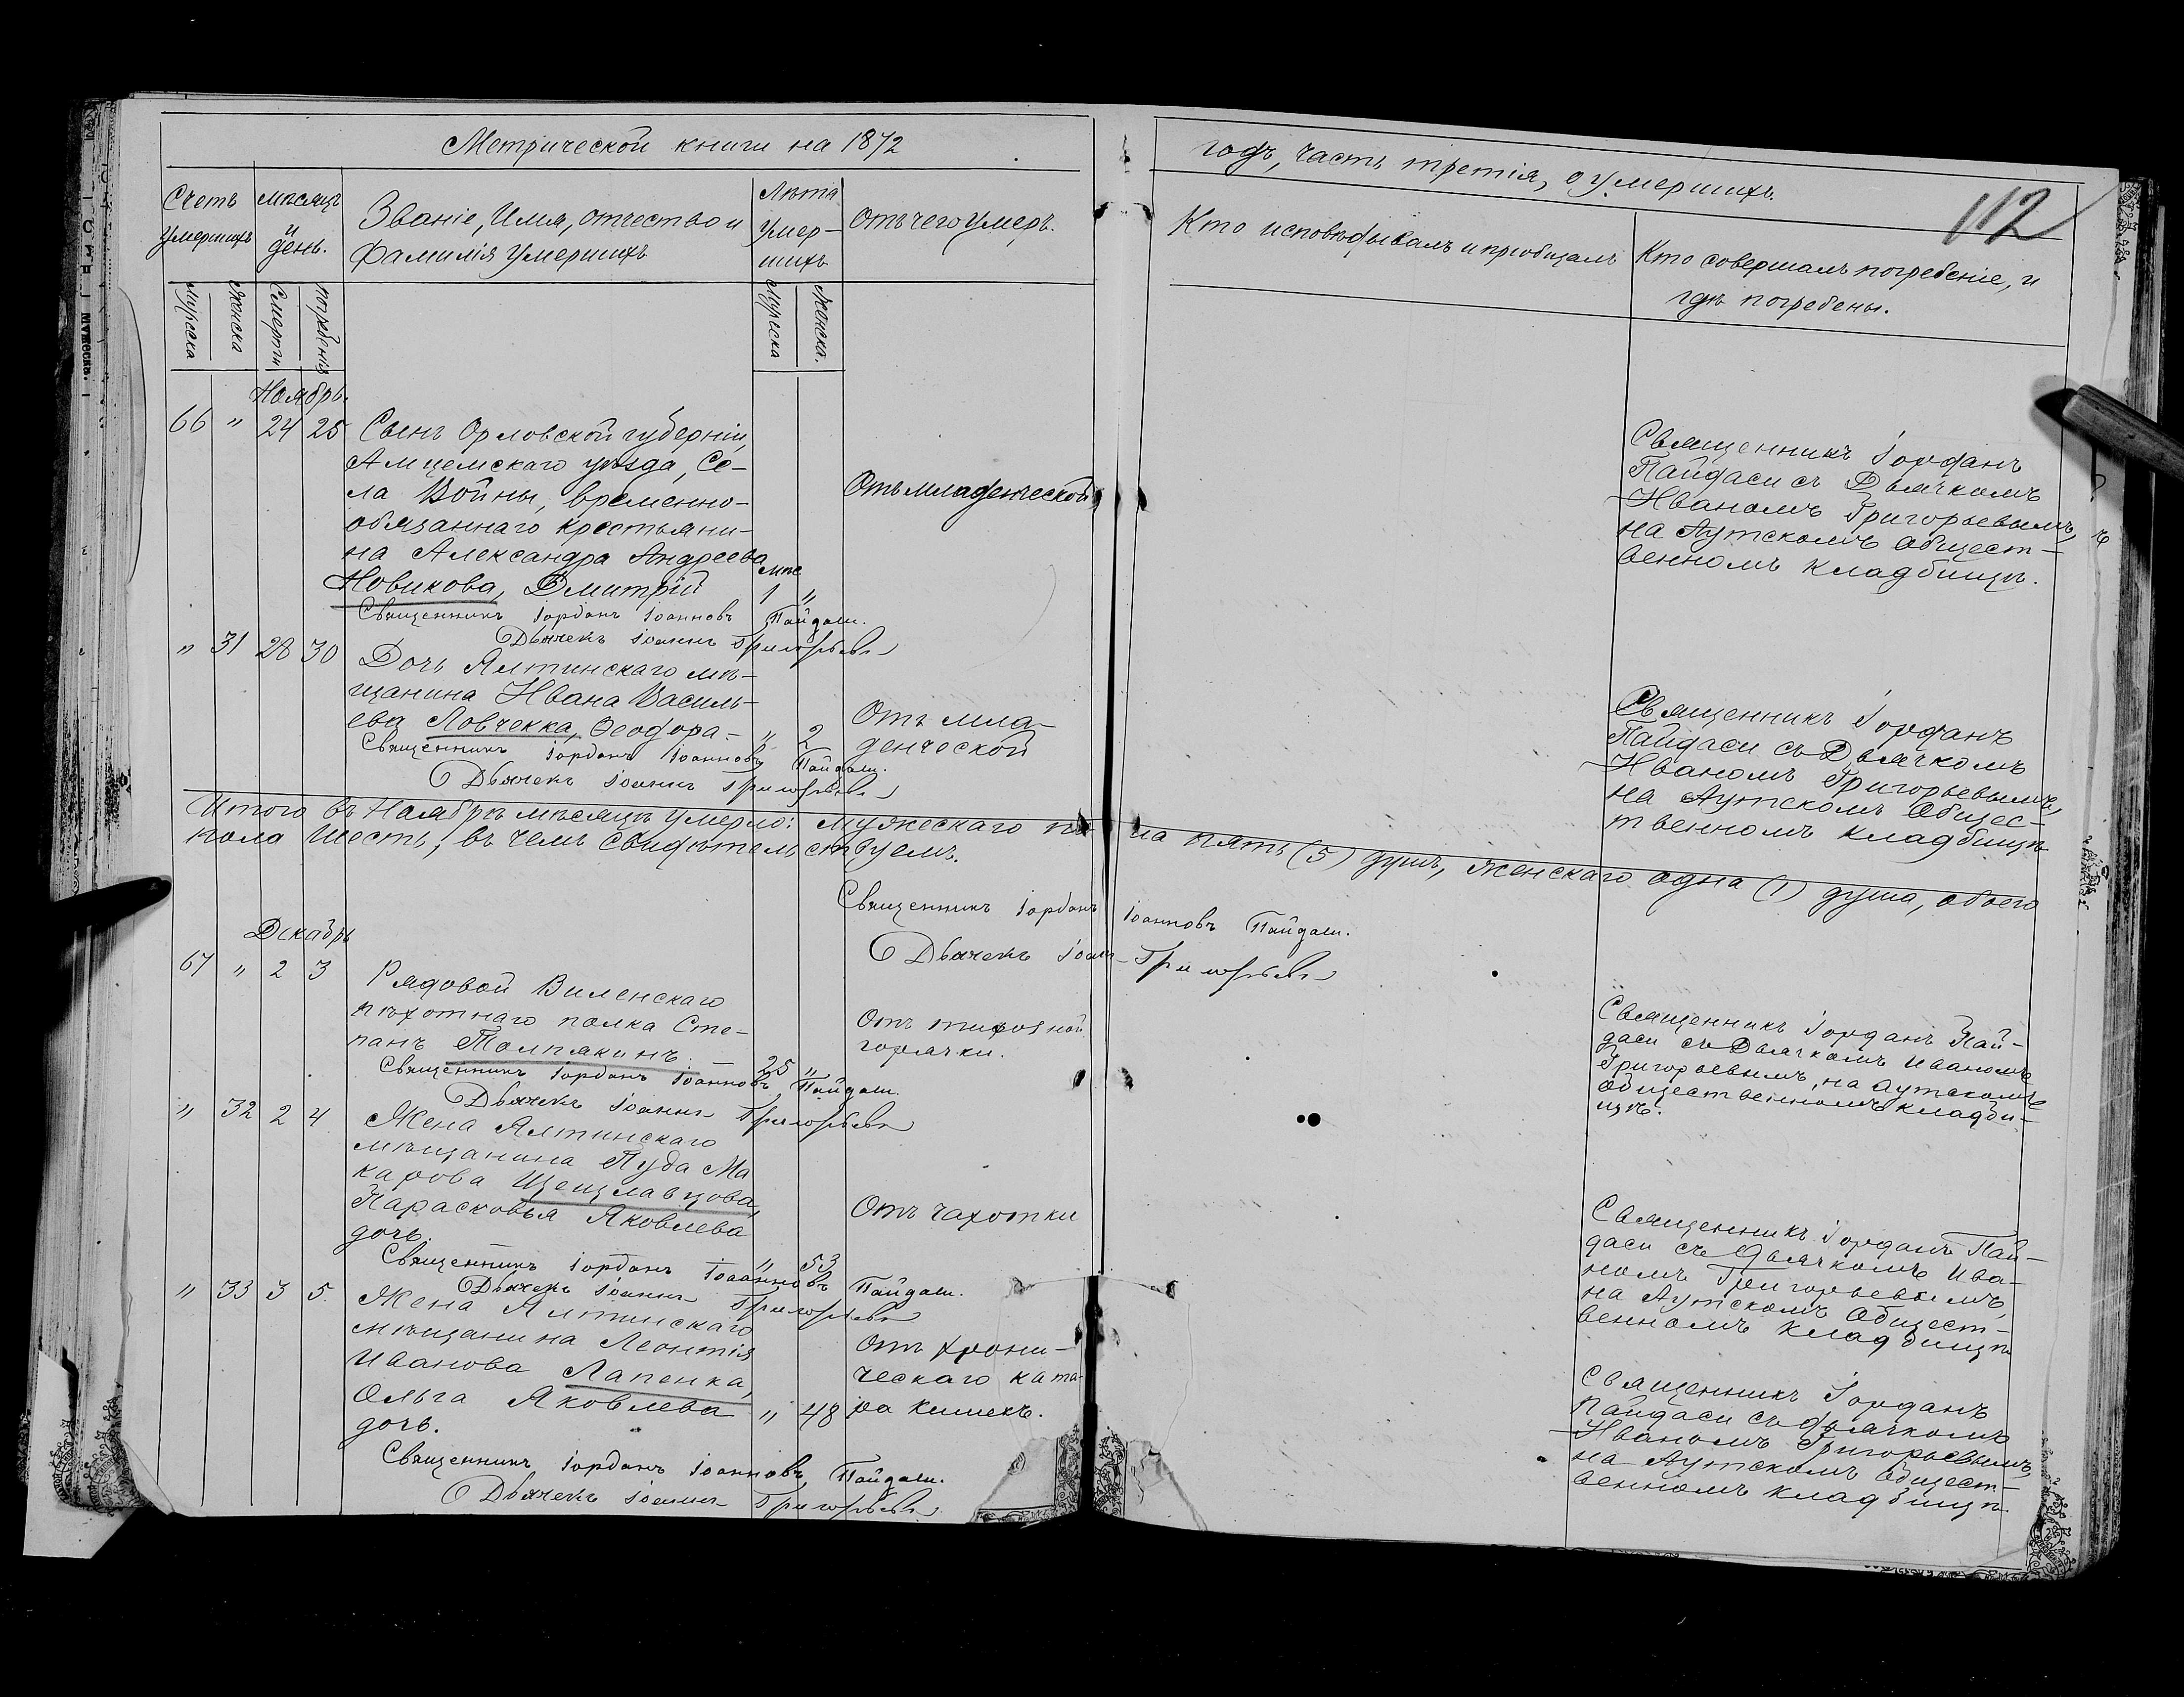 Метрической книги на 1872
годъ, часть третія, о умершихъ.
112
Счетъ умершихъ
мѣсяцъ и день.
Званіе, Имя, отчество и
фамилія умершихъ
Лѣта
умер-
шихъ
Отъ чего умеръ.
Кто исповѣдывалъ и пріобщалъ
Кто совершалъ погребеніе, и
гдѣ погребены.
Мужеска
Женска
Смерти
погребенія
Мужеска
Женска.
Ноябрь.
66 " 24 25
Сынъ Орловской губерніи,
Амценскаго уѣзда, Се-
ла Войны, временно-
обязаннаго крестьяни-
на Александра Андреева
Новикова, Дмитрій
мѣс
1 "
Отъ младенческой
Священникъ Іорданъ
Пайдаси съ Дьячкомъ
Иваномъ Григорьевымъ,
на Аутскомъ Общест-
венномъ кладбищѣ.
Священникъ Іорданъ Іоанновъ Пайдаси.
Дьячекъ Іоаннъ Григорьевъ
" 31 28 30
Дочь Ялтинскаго мѣ-
щанина Ивана Василь-
ева Ловчекка, Ѳеодора - " 2
Отъ мла-
денческой
Священникъ Іорданъ
Пайдаси съ Дьячкомъ
Иваномъ Григорьевымъ,
на Аутскомъ Общес-
твенномъ кладбищѣ
Священникъ Іорданъ Іоанновъ Пайдаси.
Дьячекъ Іоаннъ Григорьевъ
Итого въ Ноябрѣ мѣсяцѣ умерло: мужескаго по- ла пять (5) душъ, женскаго одна (1) душа, обоего
пола шесть; въ чемъ свидѣтельствуемъ.
Священникъ Іорданъ Іоанновъ Пайдаси.
Дьячекъ Іоаннъ Григорьевъ
Декабрь
67 " 2 3
Рядовой Виленскаго
пѣхотнаго полка Сте-
панъ Толпякинъ. - 25 "
Отъ тифозной
горячки.
Священникъ Іорданъ Пай-
даси съ Дьячкомъ Иваномъ
Григорьевымъ, на Аутскомъ
общественномъ кладби-
щѣ.
Священникъ Іорданъ Іоанновъ Пайдаси.
Дьячекъ Іоаннъ Григорьевъ
" 32 2 4
Жена Ялтинскаго
мѣщанина Пуда Ма
карова Щецлавцова,
Парасковья Яковлева
дочь.
" 53
Отъ чахотки
Священникъ Іорданъ Пай-
даси съ Дьячкомъ Ива-
номъ Григорьевымъ,
на Аутскомъ Общест-
венномъ кладбищѣ
Священникъ Іорданъ Іоанновъ Пайдаси.
Дьячекъ Іоаннъ Григорьевъ
" 33 3 5
Жена Ялтинскаго
мѣщанина Леонтія
Иванова Лапенка,
Ольга Яковлева
дочь.
" 48
Отъ хрони-
ческаго ката-
ра кишекъ.
Священникъ Іорданъ
Пайдаси съ дьячкомъ
Иваномъ Григорьевымъ,
на Аутскомъ Общест-
венномъ кладбищѣ
Священникъ Іорданъ Іоанновъ, Пайдаси.
Дьячекъ Іоаннъ Григорьевъ